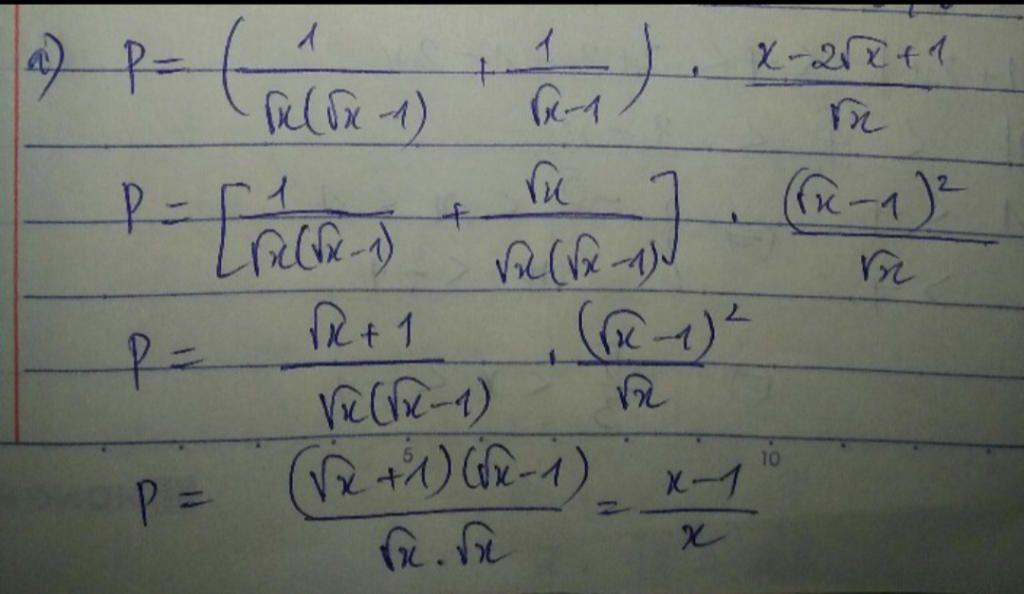 a) P = ( 1/(√x(√x - 1)) + 1/(√x - 1) ) . (x - 2√x + 1)/√x
P = [ 1/(√x(√x - 1)) + √x/(√x(√x - 1)) ] . (√x - 1)²/√x
P = (√x + 1)/(√x(√x - 1)) . (√x - 1)²/√x
5 10
P = ((√x + 1)(√x - 1))/(√x . √x) = (x - 1)/x